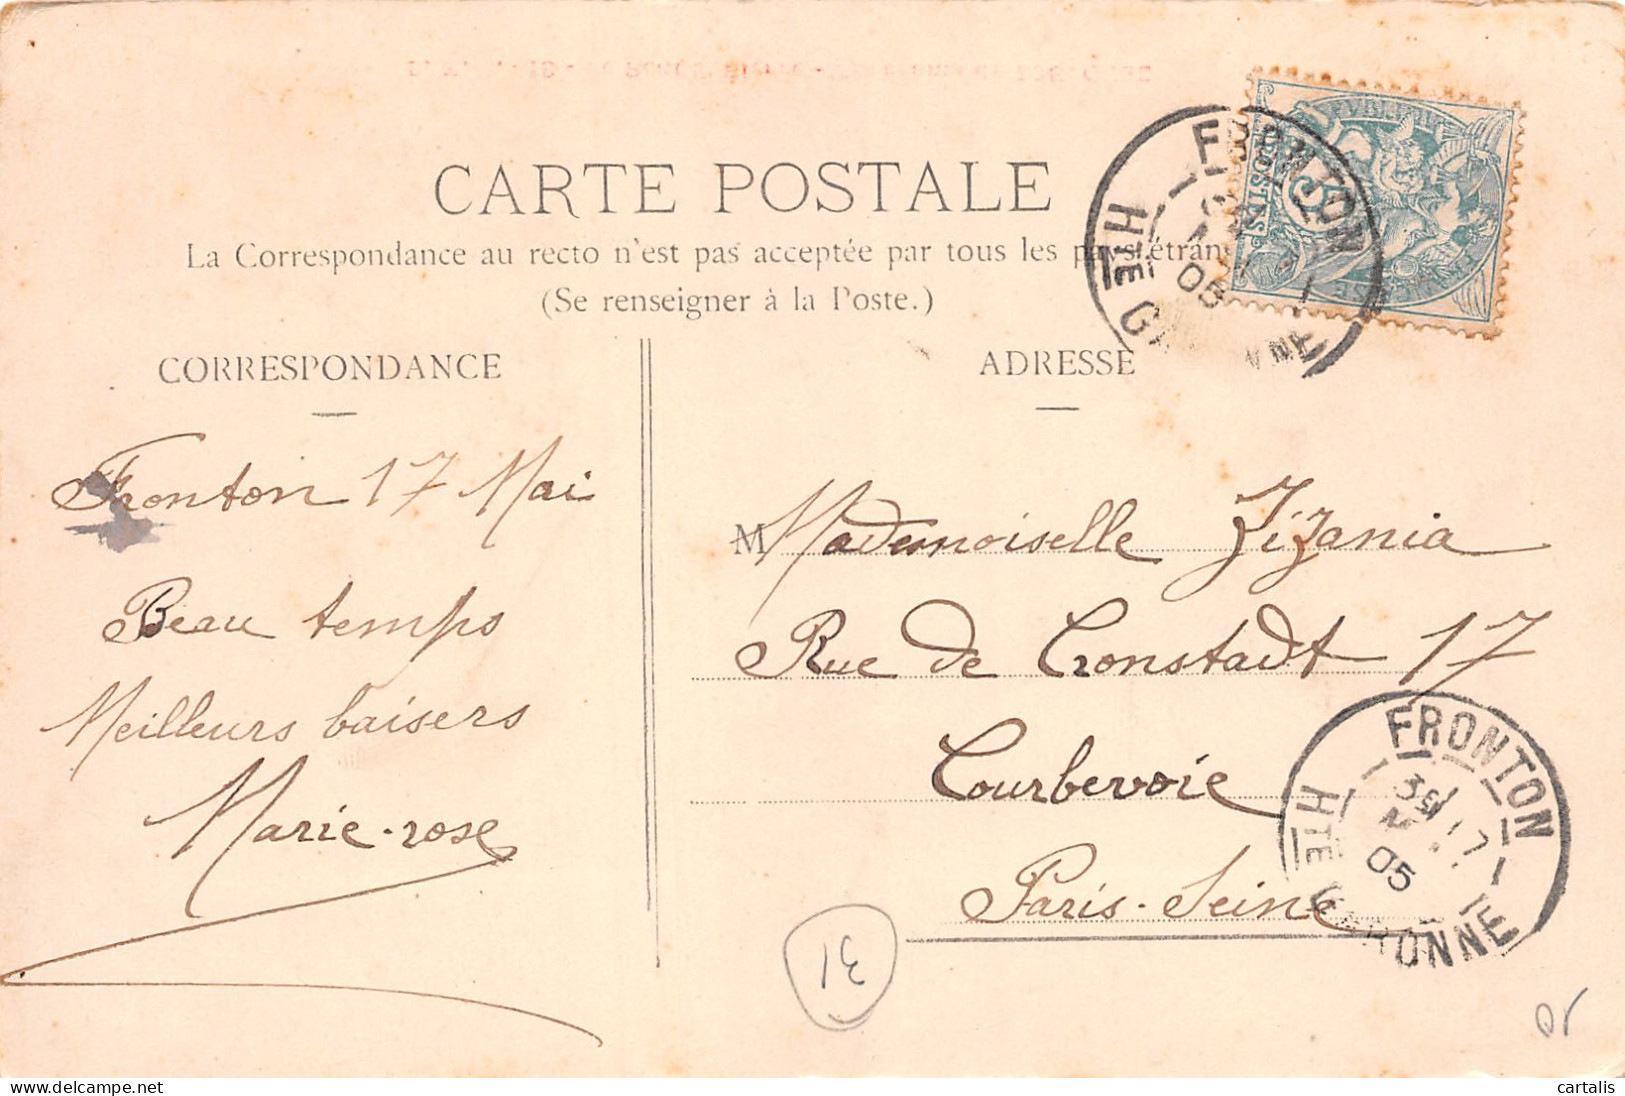 CARTE POSTALE
La Correspondance au recto n'est pas acceptée par tous les pays étran
(Se renseigner à la Poste.)
CORRESPONDANCE
ADRESSE
Fronton 17 Mai
Beau temps
Meilleurs baisers
Marie-rose
M Mademoiselle Zizania
Rue de Cronstadt 17
Courbevoie
Paris-Seine
FRONTON
05
HTE GARONNE
POSTES
5
FRONTON
17
05
HTE GARONNE
31
cartalis